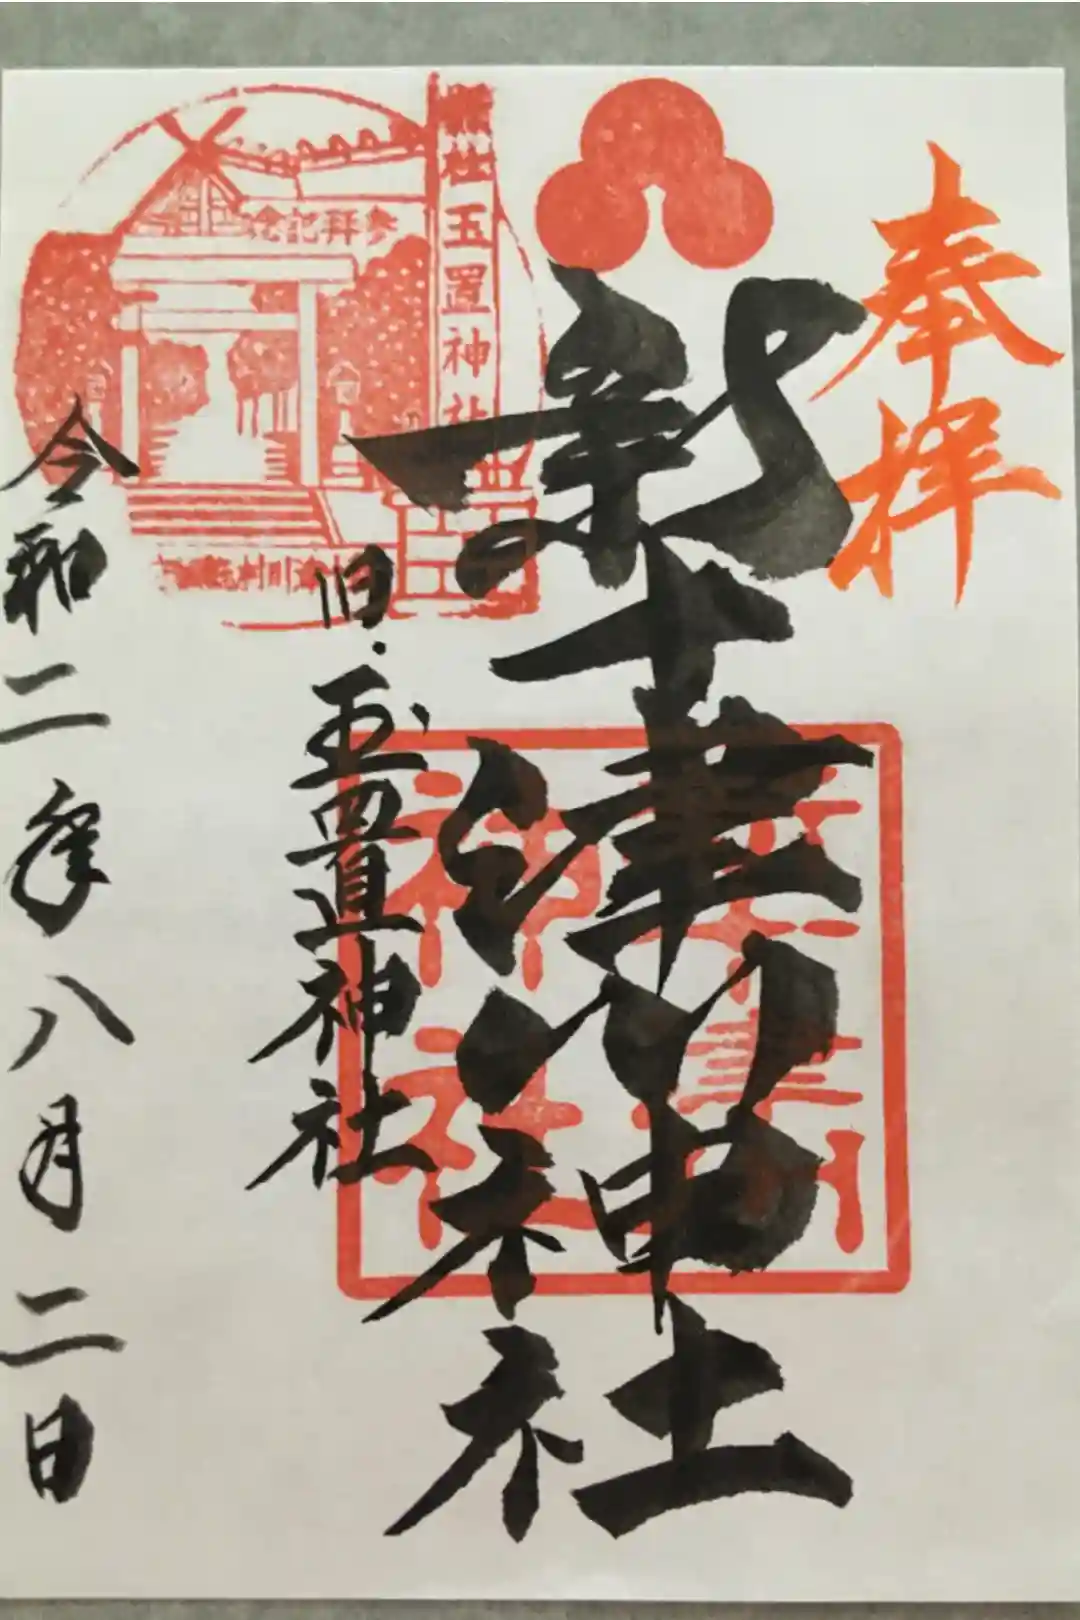 奉拝
新十津川神社
縣社玉置神社
参拝記念
旧・玉置神社
令和二年八月二日